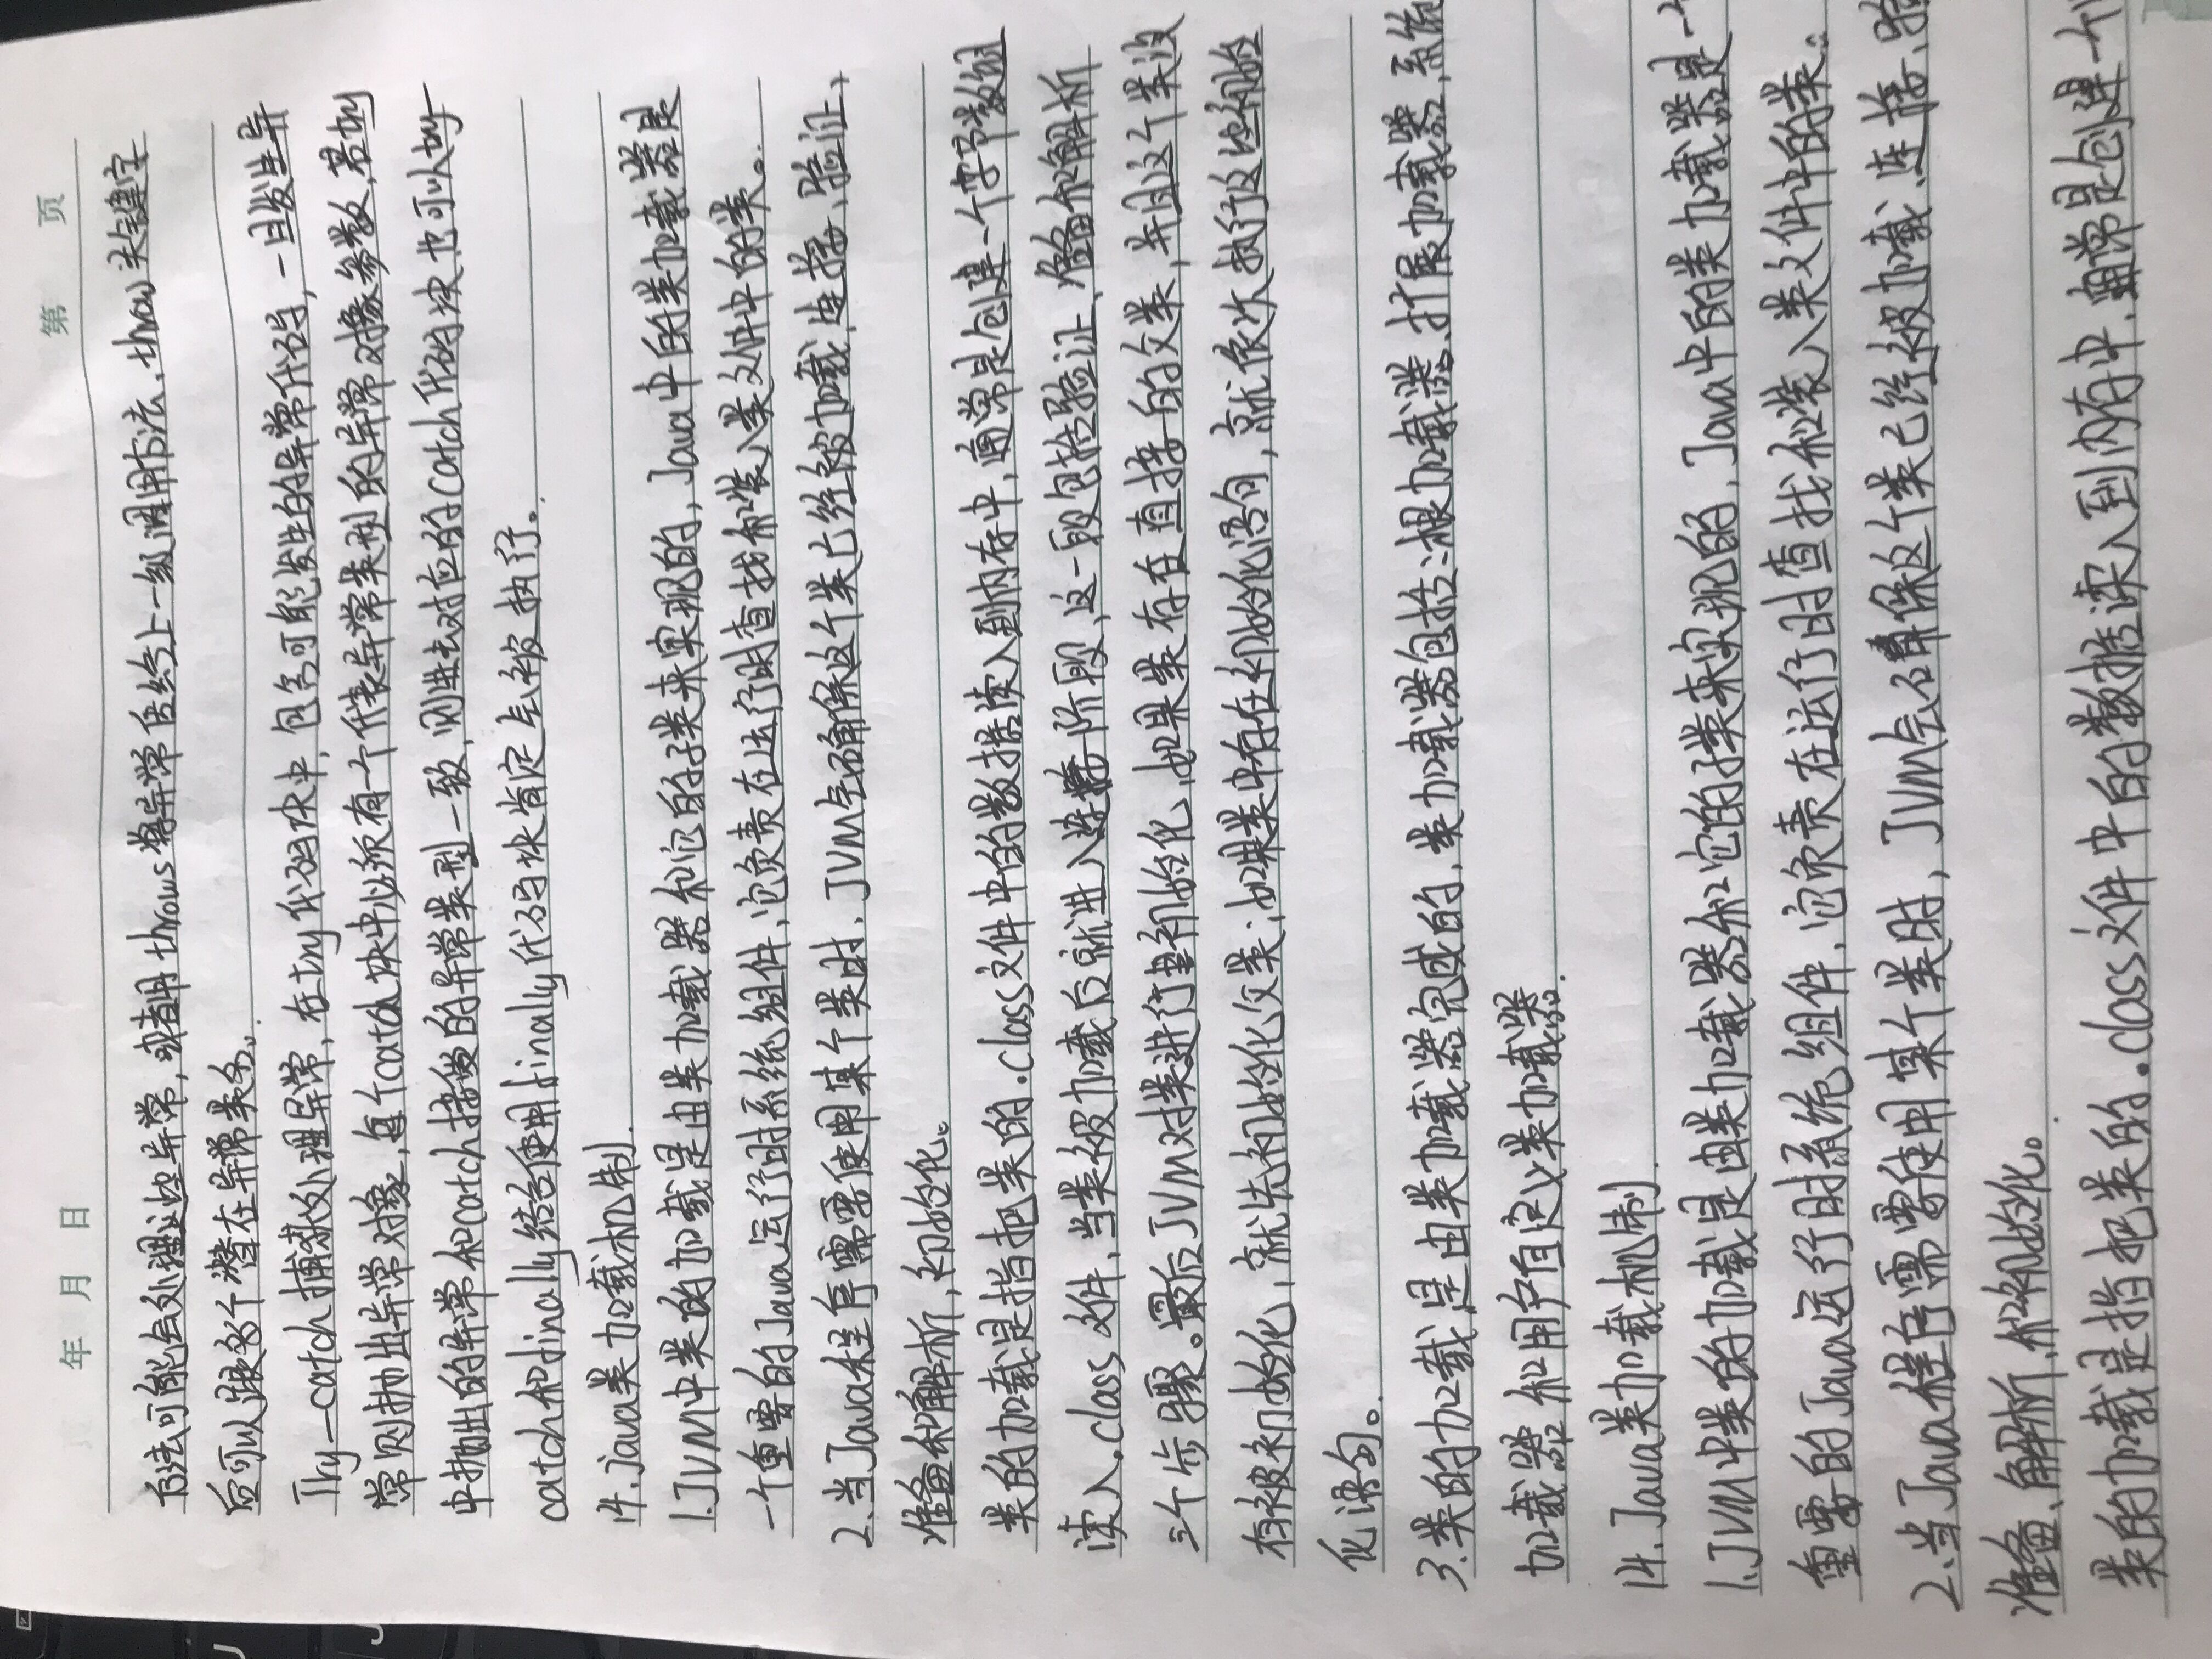 年 月 日 第 页
方法可能会处理这些异常，或者用throws将异常传给上一级调用方法，throw关键字
后可以跟多个潜在异常类名。
Try—catch捕获处理异常，在try代码块中，包含可能发生的异常代码，一旦发生异
常则抛出异常对象，每个catch块中必须有一个代表异常类型的异常对象参数，若try
中抛出的异常和catch接受的异常类型一致，则进去对应的catch代码块也可以try—
catch和finally结合使用finally代码块肯定会被执行。
14.java类加载机制.
1.JVM中类的加载是由类加载器和它的子类来实现的，Java中的类加载器是
一个重要的Java运行时系统组件，它负责在运行时查找和装入类文件中的类。
2.当Java程序需要使用某个类时，JVM会确保这个类已经被加载、连接、验证，
准备和解析，初始化。
类的加载是指把类的.class文件中的数据读入到内存中，通常是创建一个字节数组
读入.class文件，当类被加载后就进入连接阶段，这一段包括验证、准备和解析
三个步骤。最后JVM对类进行初始化，如果类存在直接的父类，并且这个类没
有被初始化，就先初始化父类；如果类中存在初始化语句，就依次执行这些初始
化语句。
3.类的加载是由类加载器完成的，类加载器包括：根加载器、扩展加载器，系统
加载器和用户自定义类加载器.
14.Java类加载机制.
1.JVM中类的加载是由类加载器和它的子类来实现的，Java中的类加载器是一个
重要的Java运行时系统组件，它负责在运行时查找和装入类文件中的类。
2.当Java程序需要使用某个类时，JVM会确保这个类已经被加载、连接、验
准备、解析、和初始化。
类的加载是指把类的.class文件中的数据读入到内存中，通常是创建一个